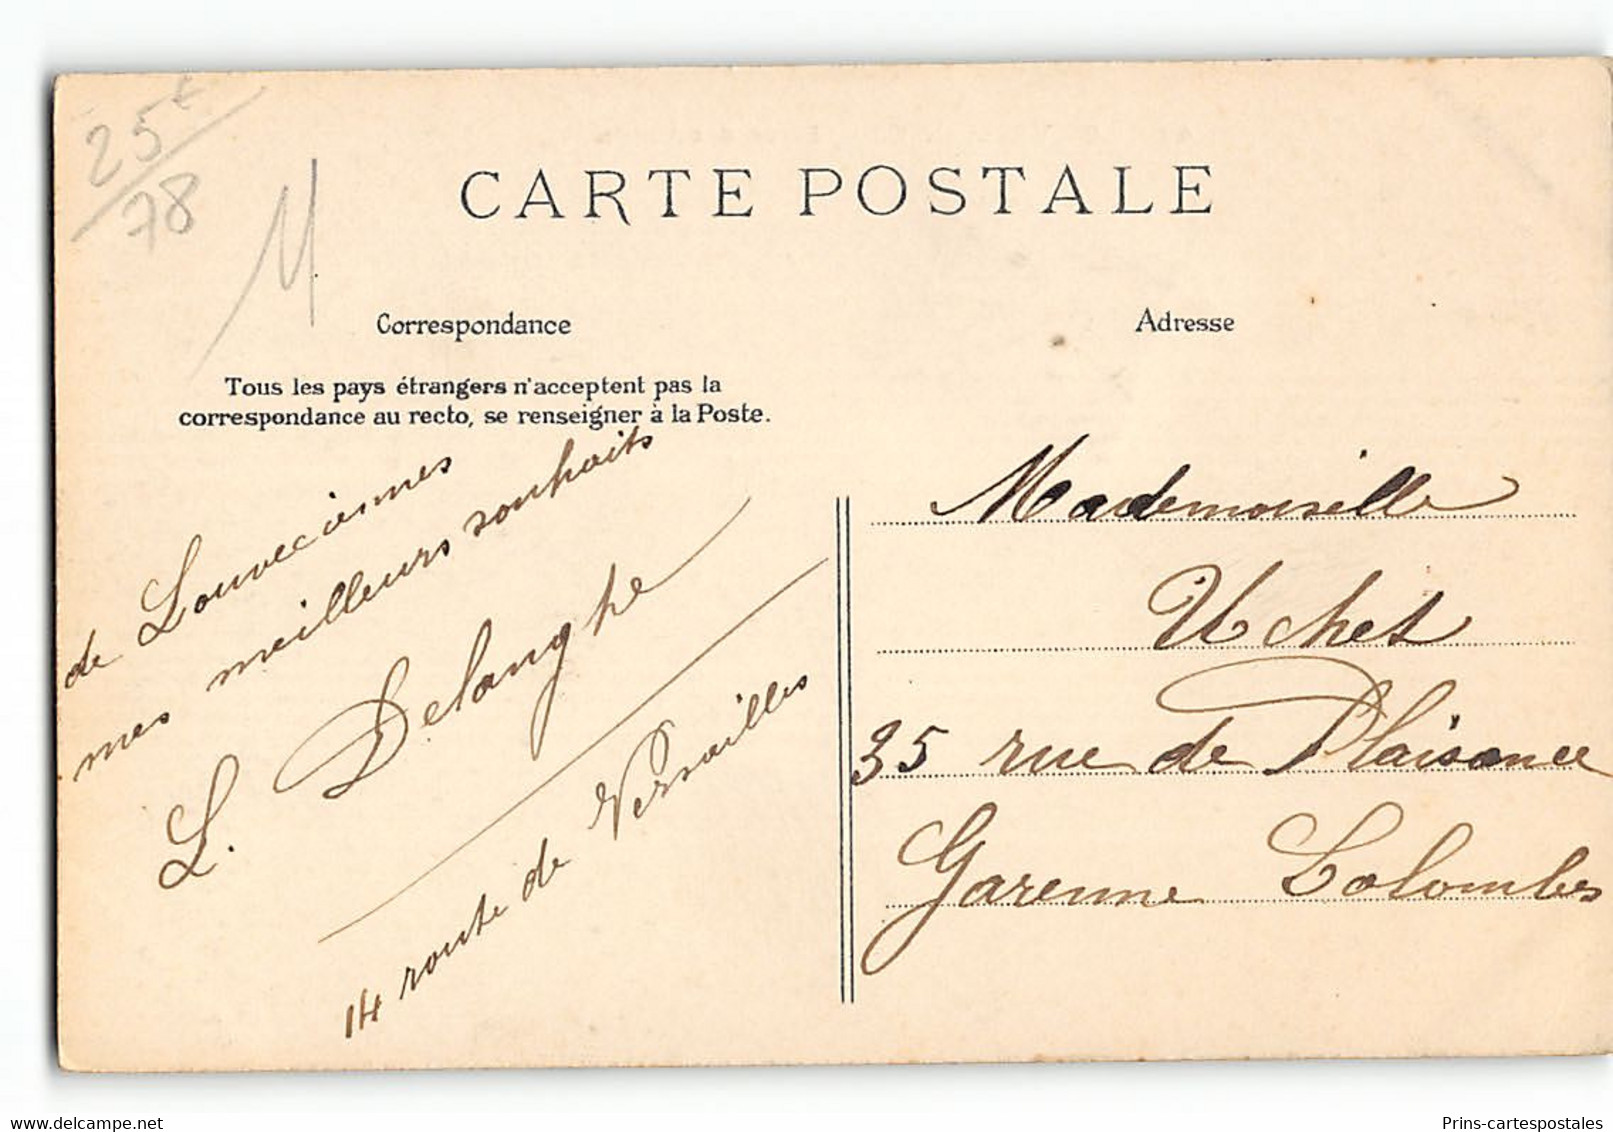 25€
78
M
CARTE POSTALE
Correspondance
Tous les pays étrangers n'acceptent pas la
correspondance au recto, se renseigner à la Poste.
de Louveciennes
mes meilleurs souhaits
L. Delanghe
14 route de Versailles
Adresse
Mademoiselle
Uchet
35 rue de Plaisance
Garenne Colombes
delcampe.net
Prins-cartespostales